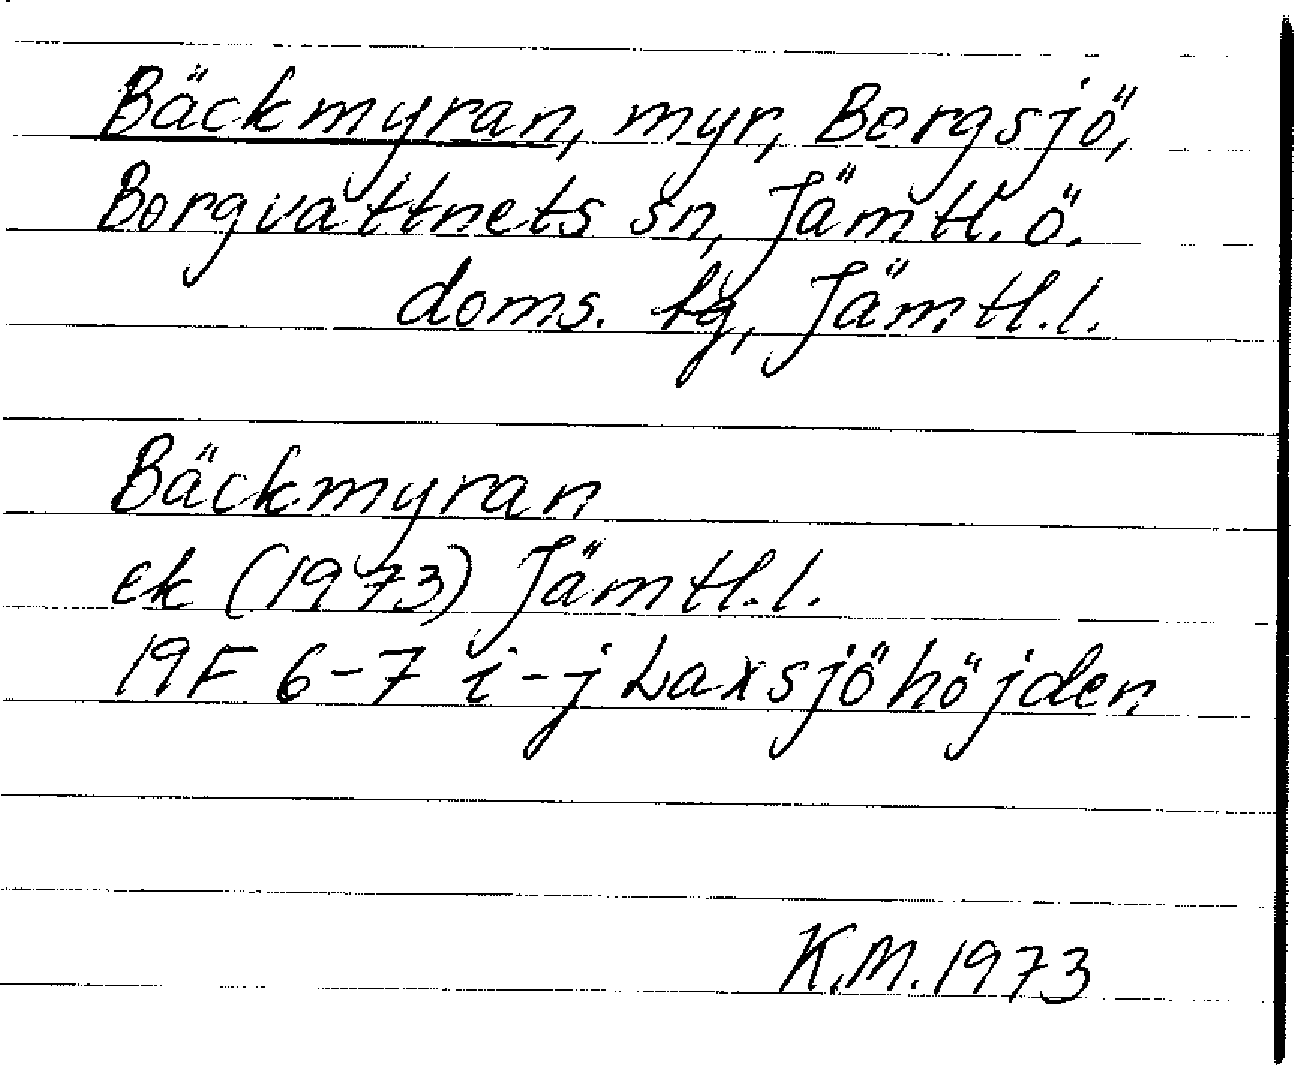 Bäckmyran, myr, Borgsjö,
Borgvattnets sn, Jämtl. ö.
doms. tg, Jämtl.l.
Bäckmyran
ek (1973) Jämtl.l.
19F 6-7 i-j Laxsjöhöjden
K.M. 1973